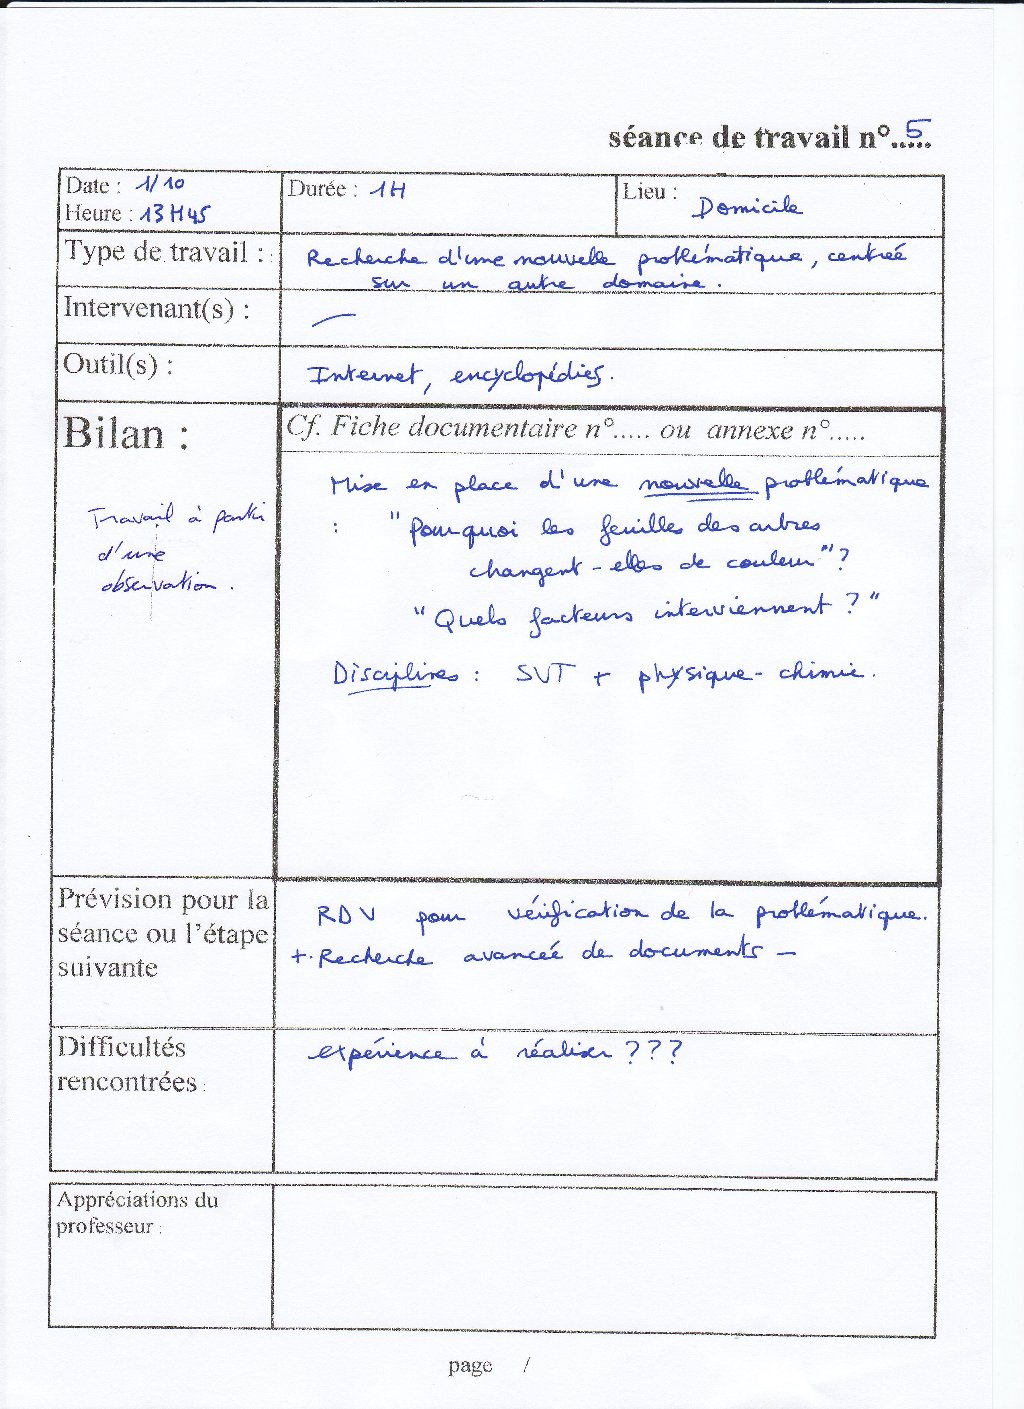 séance de travail n°.....5
Date : 1/10
Heure : 13H45
Durée : 1H
Lieu : Domicile
Type de travail :
Recherche d'une nouvelle problématique, centrée
sur un autre domaine.
Intervenant(s) : —
Outil(s) : Internet, encyclopédies.
Bilan :
Travail à partir
d'une
observation.
Cf. Fiche documentaire n°..... ou annexe n°.....
Mise en place d'une nouvelle problématique
: "Pourquoi les feuilles des arbres
changent-elles de couleur"?
"Quels facteurs interviennent ?"
Disciplines : SVT + physique-chimie.
Prévision pour la
séance ou l'étape
suivante
RDV pour vérification de la problématique.
+ Recherche avancée de documents —
Difficultés
rencontrées :
expérience à réaliser ???
Appréciations du
professeur :
page /